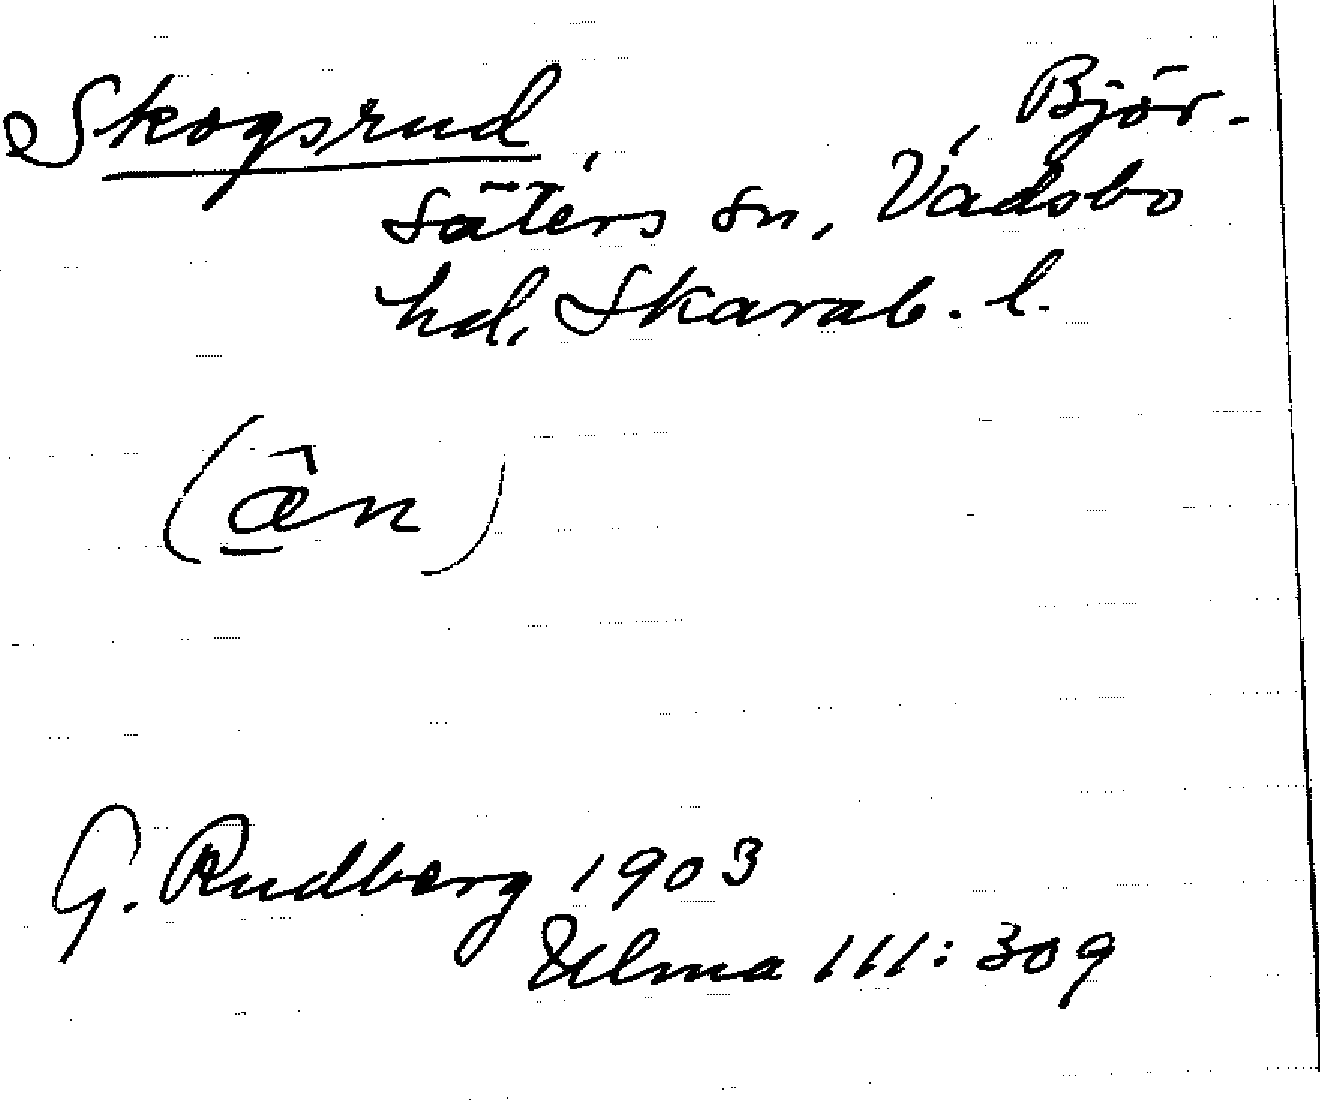 Skogsrud, Björ-
säters sn, Vadsbo
hd, Skarab. l.
(ân)
G. Rudberg 1903
Ulma 111:309